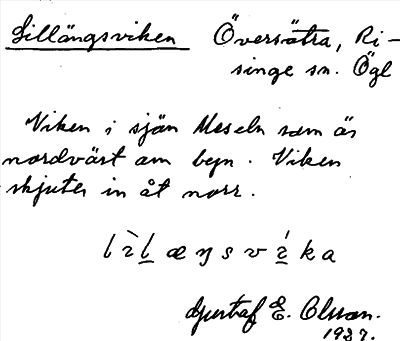 Lillängsviken Översätra, Ri-
singe sn. Ögl
Viken i sjön Meseln som är
nordväst om byn. Viken
skjuter in åt norr.
lìlæŋsvíka
Gustaf E. Olsson.
1937.